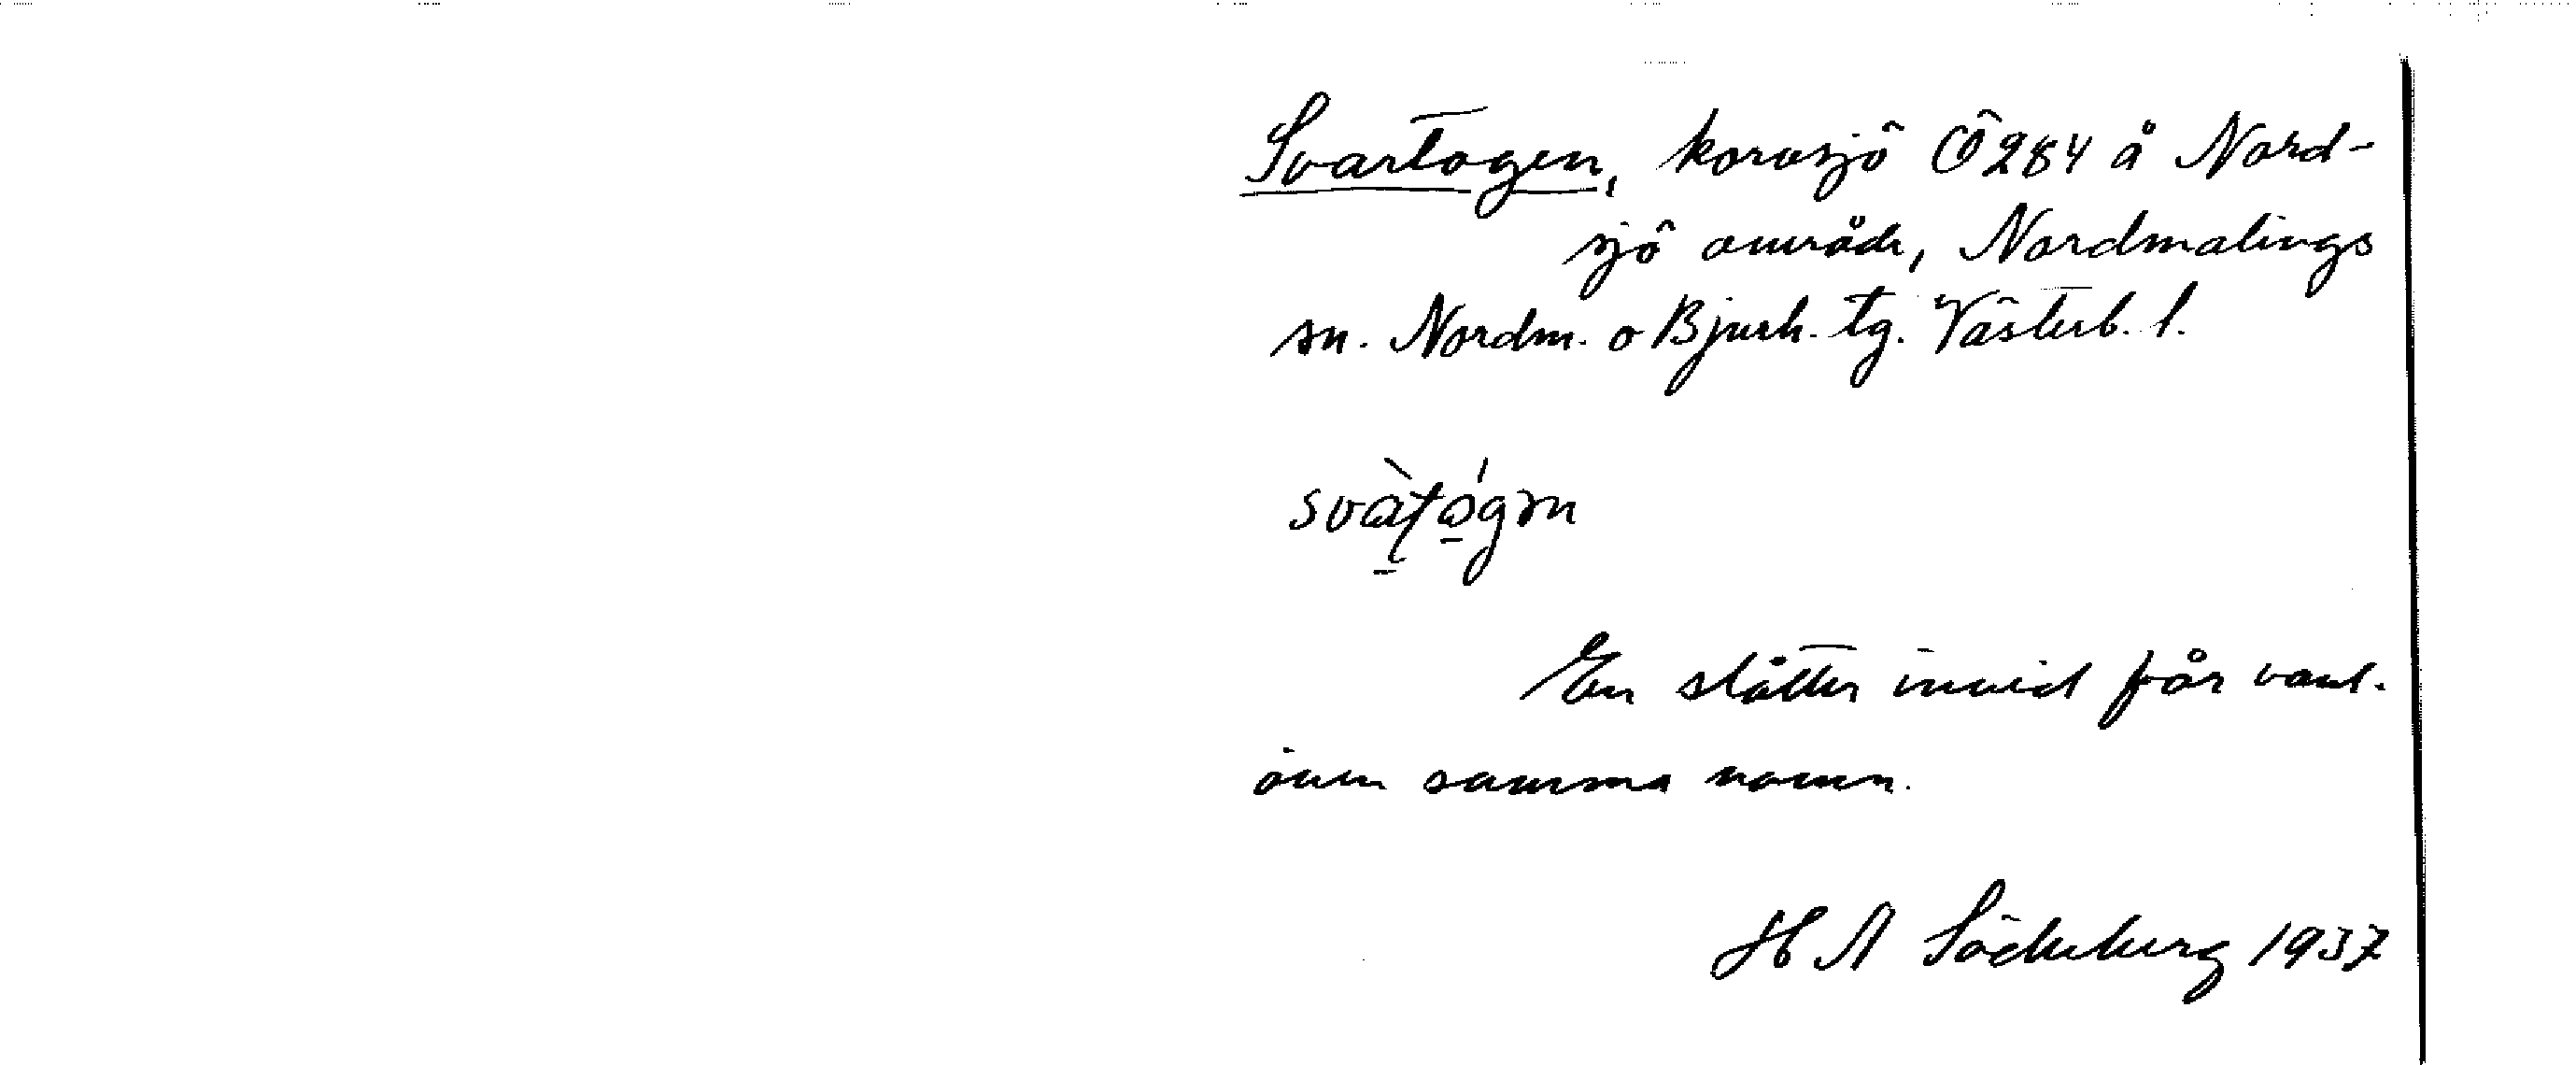 Svartögen, korvsjö Ö 284 å Nord-
sjö område, Nordmalings
sn. Nordm. o Bjurh. tg. Västerb. l.
En slåtter invid får vanl.
även samma namn.
H A Söderberg 1937